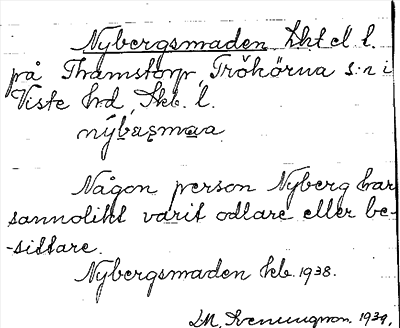 Nybergsmaden Lht el l.
på Thamstorp, Trökörna s:n i
Viste hrd, Skb. l.
nýbæsmaa
Någon person Nyberg har
sannolikt varit odlare eller be-
-sittare.
Nybergsmaden hk. 1938.
L.M. Svenungson. 1939.